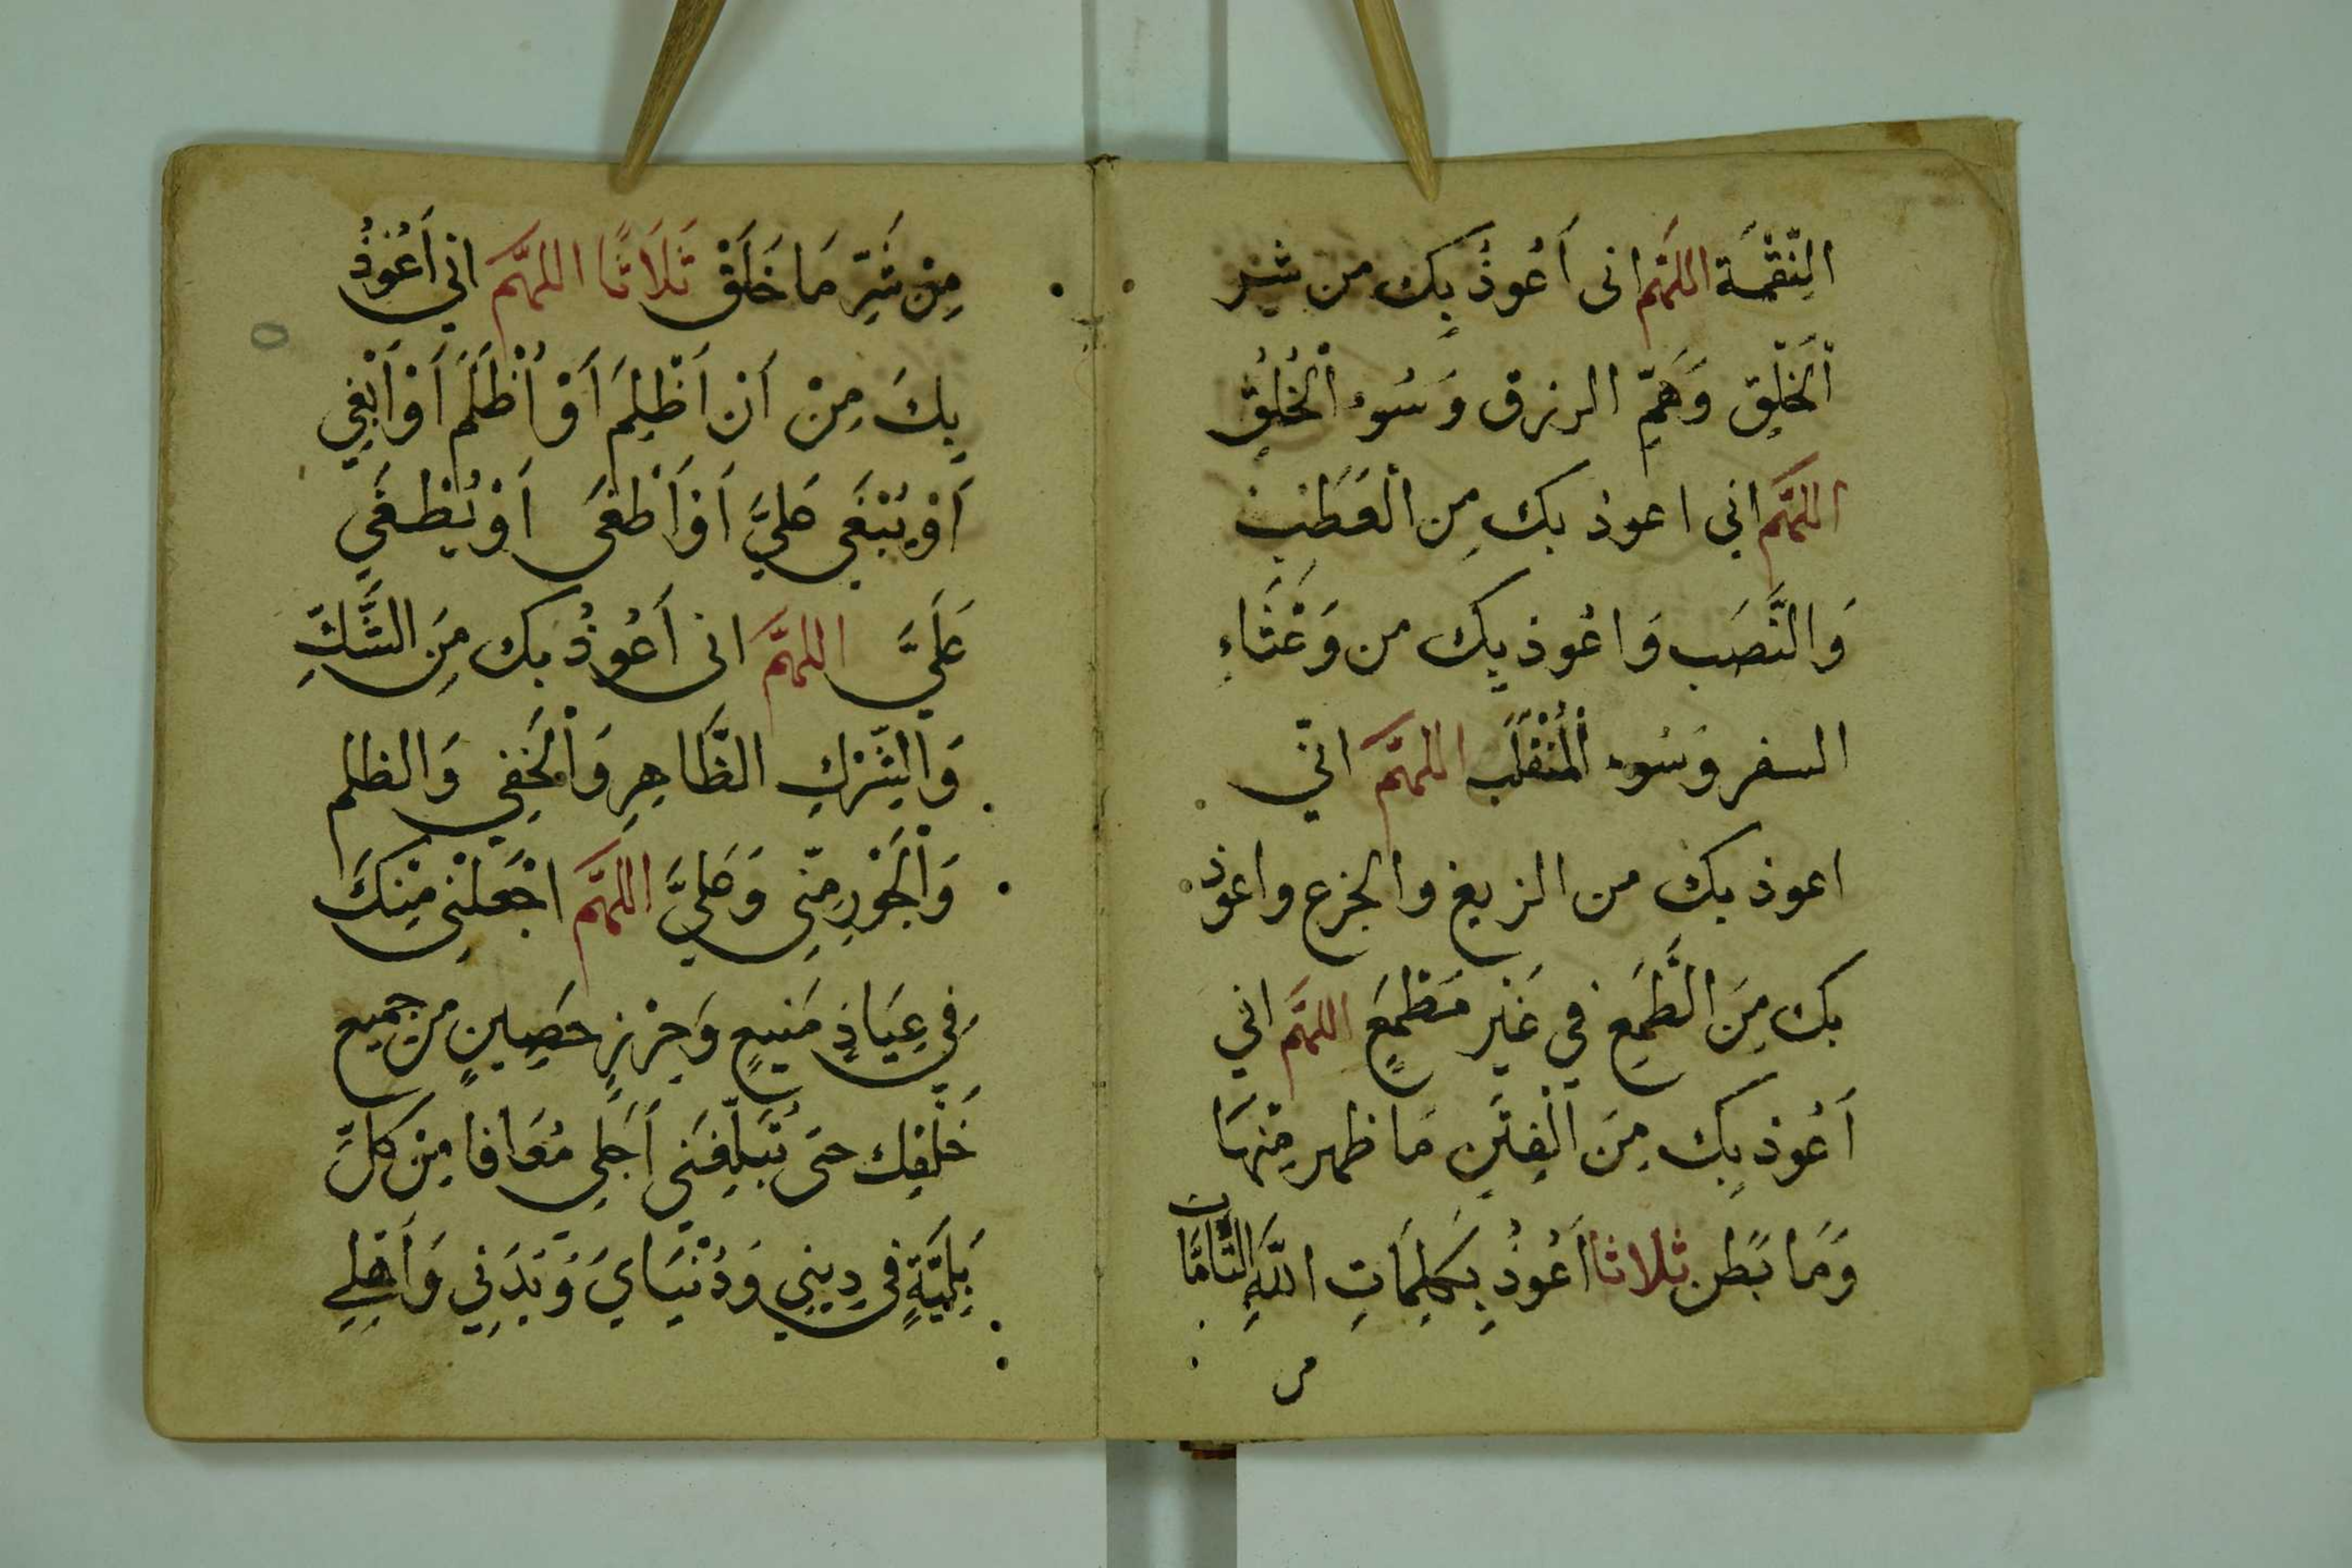 النِّقْمَة اللهُمَّ انى أَعُوذُ بِكَ من شر
اْلخَلْقِ وَهَمِّ الرزق وَسُوءِ اْلخُلُقِ
اللهُمَّ اني اعوذ بك مِن اْلعَطَبِ
وَالنَّصَب وَاعُوذ بِك من وَعْثَاءِ
السفر وَسُوء اْلمُنْقَلَب اللهُمَّ انّي
اعوذ بك من الزيغ والجزع واعوذ
بك مِنَ الطَّمَعِ في غَيْرِ مَطْمَعٍ اللهُمَّ اني
أَعُوذ بِك مِنَ اْلفِتَنِ مَا ظهر مِنْهَا
وَمَا بَطن ثلاثا أَعُوذُ بِكَلِمَاتِ اللَّهِ التَّامَّات
من
مِنْ شَرِّ مَا خَلَقْ ثَلَاثًا اللهُمَّ اني أَعُوذُ
بِكَ مِنْ أَنْ أَظْلِمَ أَوْ أُظْلَمَ أَوْ أَبْغِي
أَوْ يُبْغَى عَليَّ أَوْ أَطْغَى أَوْ يُطْغَي
عَلَيَّ اللهُمَّ انى أَعُوذُ بك مِنَ الشَّكِّ
وَالشِّرْكِ الظَّاهِرِ وَاْلخَفِي وَالظلم
وَاْلجَوْرِ مِنّى وَعَليَّ اللهُمَّ اجْعَلْنِى مِنْكَ
فِي عِيَاذٍ مَنِيعٍ وَحِرْزٍ حَصِينٍ من جميع
خَلْقِك حَتى تُبَلِّغَنِي أَجَلِي مُعَافا مِنْ كلِّ
بَلِيَّةٍ فى دِينِي وَدُنْيَايَ وَبَدَنِي وَأَهْلِي